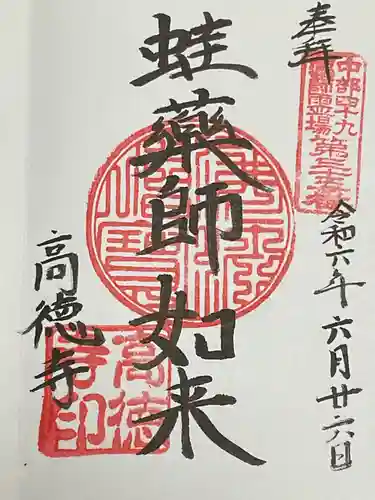 奉拝
中部四十九
薬師霊場第三十五番
令和六年六月廿六日
蛙薬師如来
高徳寺
高徳
寺印